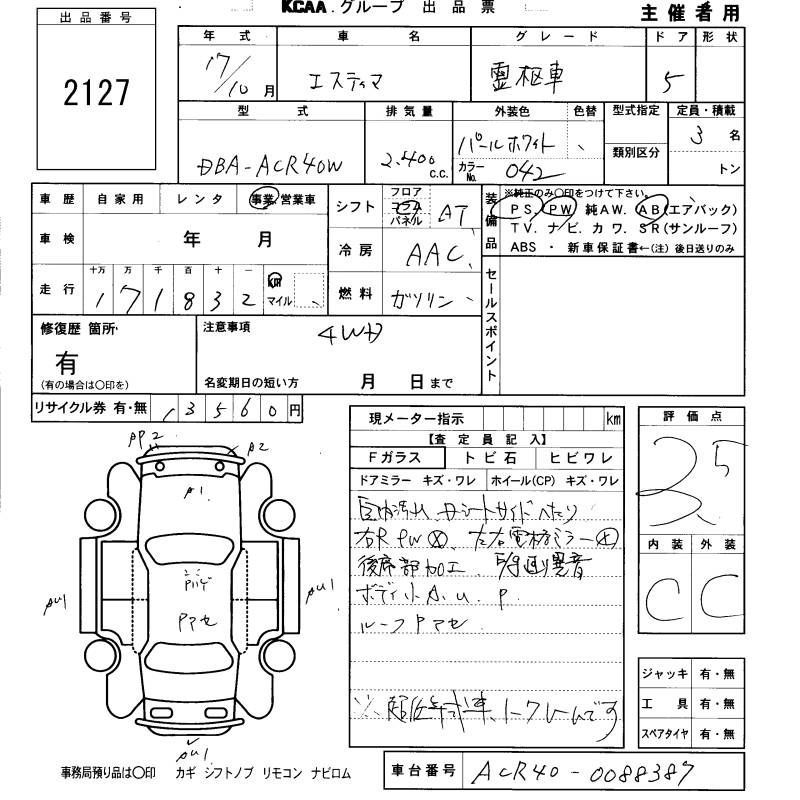 KCAA.グループ 出品票
主催者用
出品番号
2127
年式 車名 グレード ドア 形状
17/10月 エスティマ 霊柩車 5
型式 排気量 外装色 色替 型式指定 定員・積載
DBA-ACR40W 2.400 c.c. パールホワイト 、 カラーNo. 042 類別区分 3名 トン
車歴 自家用 レンタ 事業 営業車
車検 年 月
走行 十万 万 千 百 十 一 km マイル
1 7 1 8 3 2 、
シフト フロア コラム パネル AT
冷房 AAC、
燃料 ガソリン、
装備品 ※純正のみ〇印をつけて下さい。
PS. PW 純AW. AB(エアバック)
TV. ナビ. カワ. SR(サンルーフ)
ABS ・ 新車保証書←(注) 後日送りのみ
セールスポイント
修復歴 箇所
有
(有の場合は〇印を)
注意事項 4WD
名変期日の短い方 月 日まで
リサイクル券 有・無 13560円
現メーター指示 km
【査定員記入】
Fガラス トビ石 ヒビワレ
ドアミラー キズ・ワレ ホイール(CP) キズ・ワレ
右R PW
後席部加工
ルーフ Pアセ
評価点
3.5
内装 外装
C C
ジャッキ 有・無
工具 有・無
スペアタイヤ 有・無
AP2 A2
A1
Pハゲ
Pアセ
AU1 AU1
AU1
事務局預り品は〇印 カギ シフトノブ リモコン ナビロム
車台番号 ACR40-0088387